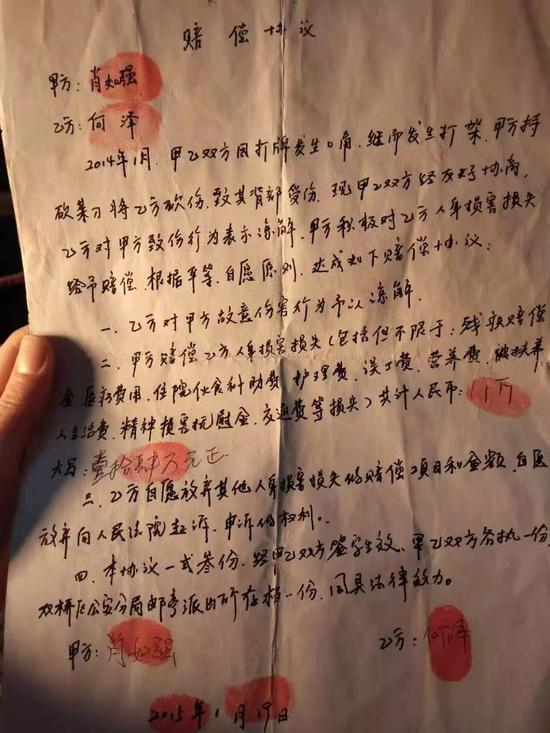 赔偿协议
甲方：肖如强
乙方：何泽
2014年1月，甲乙双方因打牌发生口角，继而发生打架，甲方持
砍菜刀将乙方砍伤，致其背部受伤，现甲乙双方经友好协商，
乙方对甲方致伤行为表示谅解，甲方积极对乙方人身损害损失
给予赔偿，根据平等、自愿原则，达成如下赔偿协议：
一、乙方对甲方故意伤害行为予以谅解。
二、甲方赔偿乙方人身损害损失（包括但不限于：残疾赔偿
金、医疗费用、住院伙食补助费、护理费、误工费、营养费、被扶养
人生活费、精神损害抚慰金、交通费等损失）共计人民币：万
大写：壹拾肆万元正
三、乙方自愿放弃其他人身损害损失的赔偿项目和金额，自愿
放弃向人民法院起诉、申诉的权利。
四、本协议一式叁份，经甲乙双方签字生效，甲乙双方各执一份，
双桥区公安分局邮亭派出所存档一份，同具法律效力。
甲方：肖如强 乙方：何泽
2015年1月19日